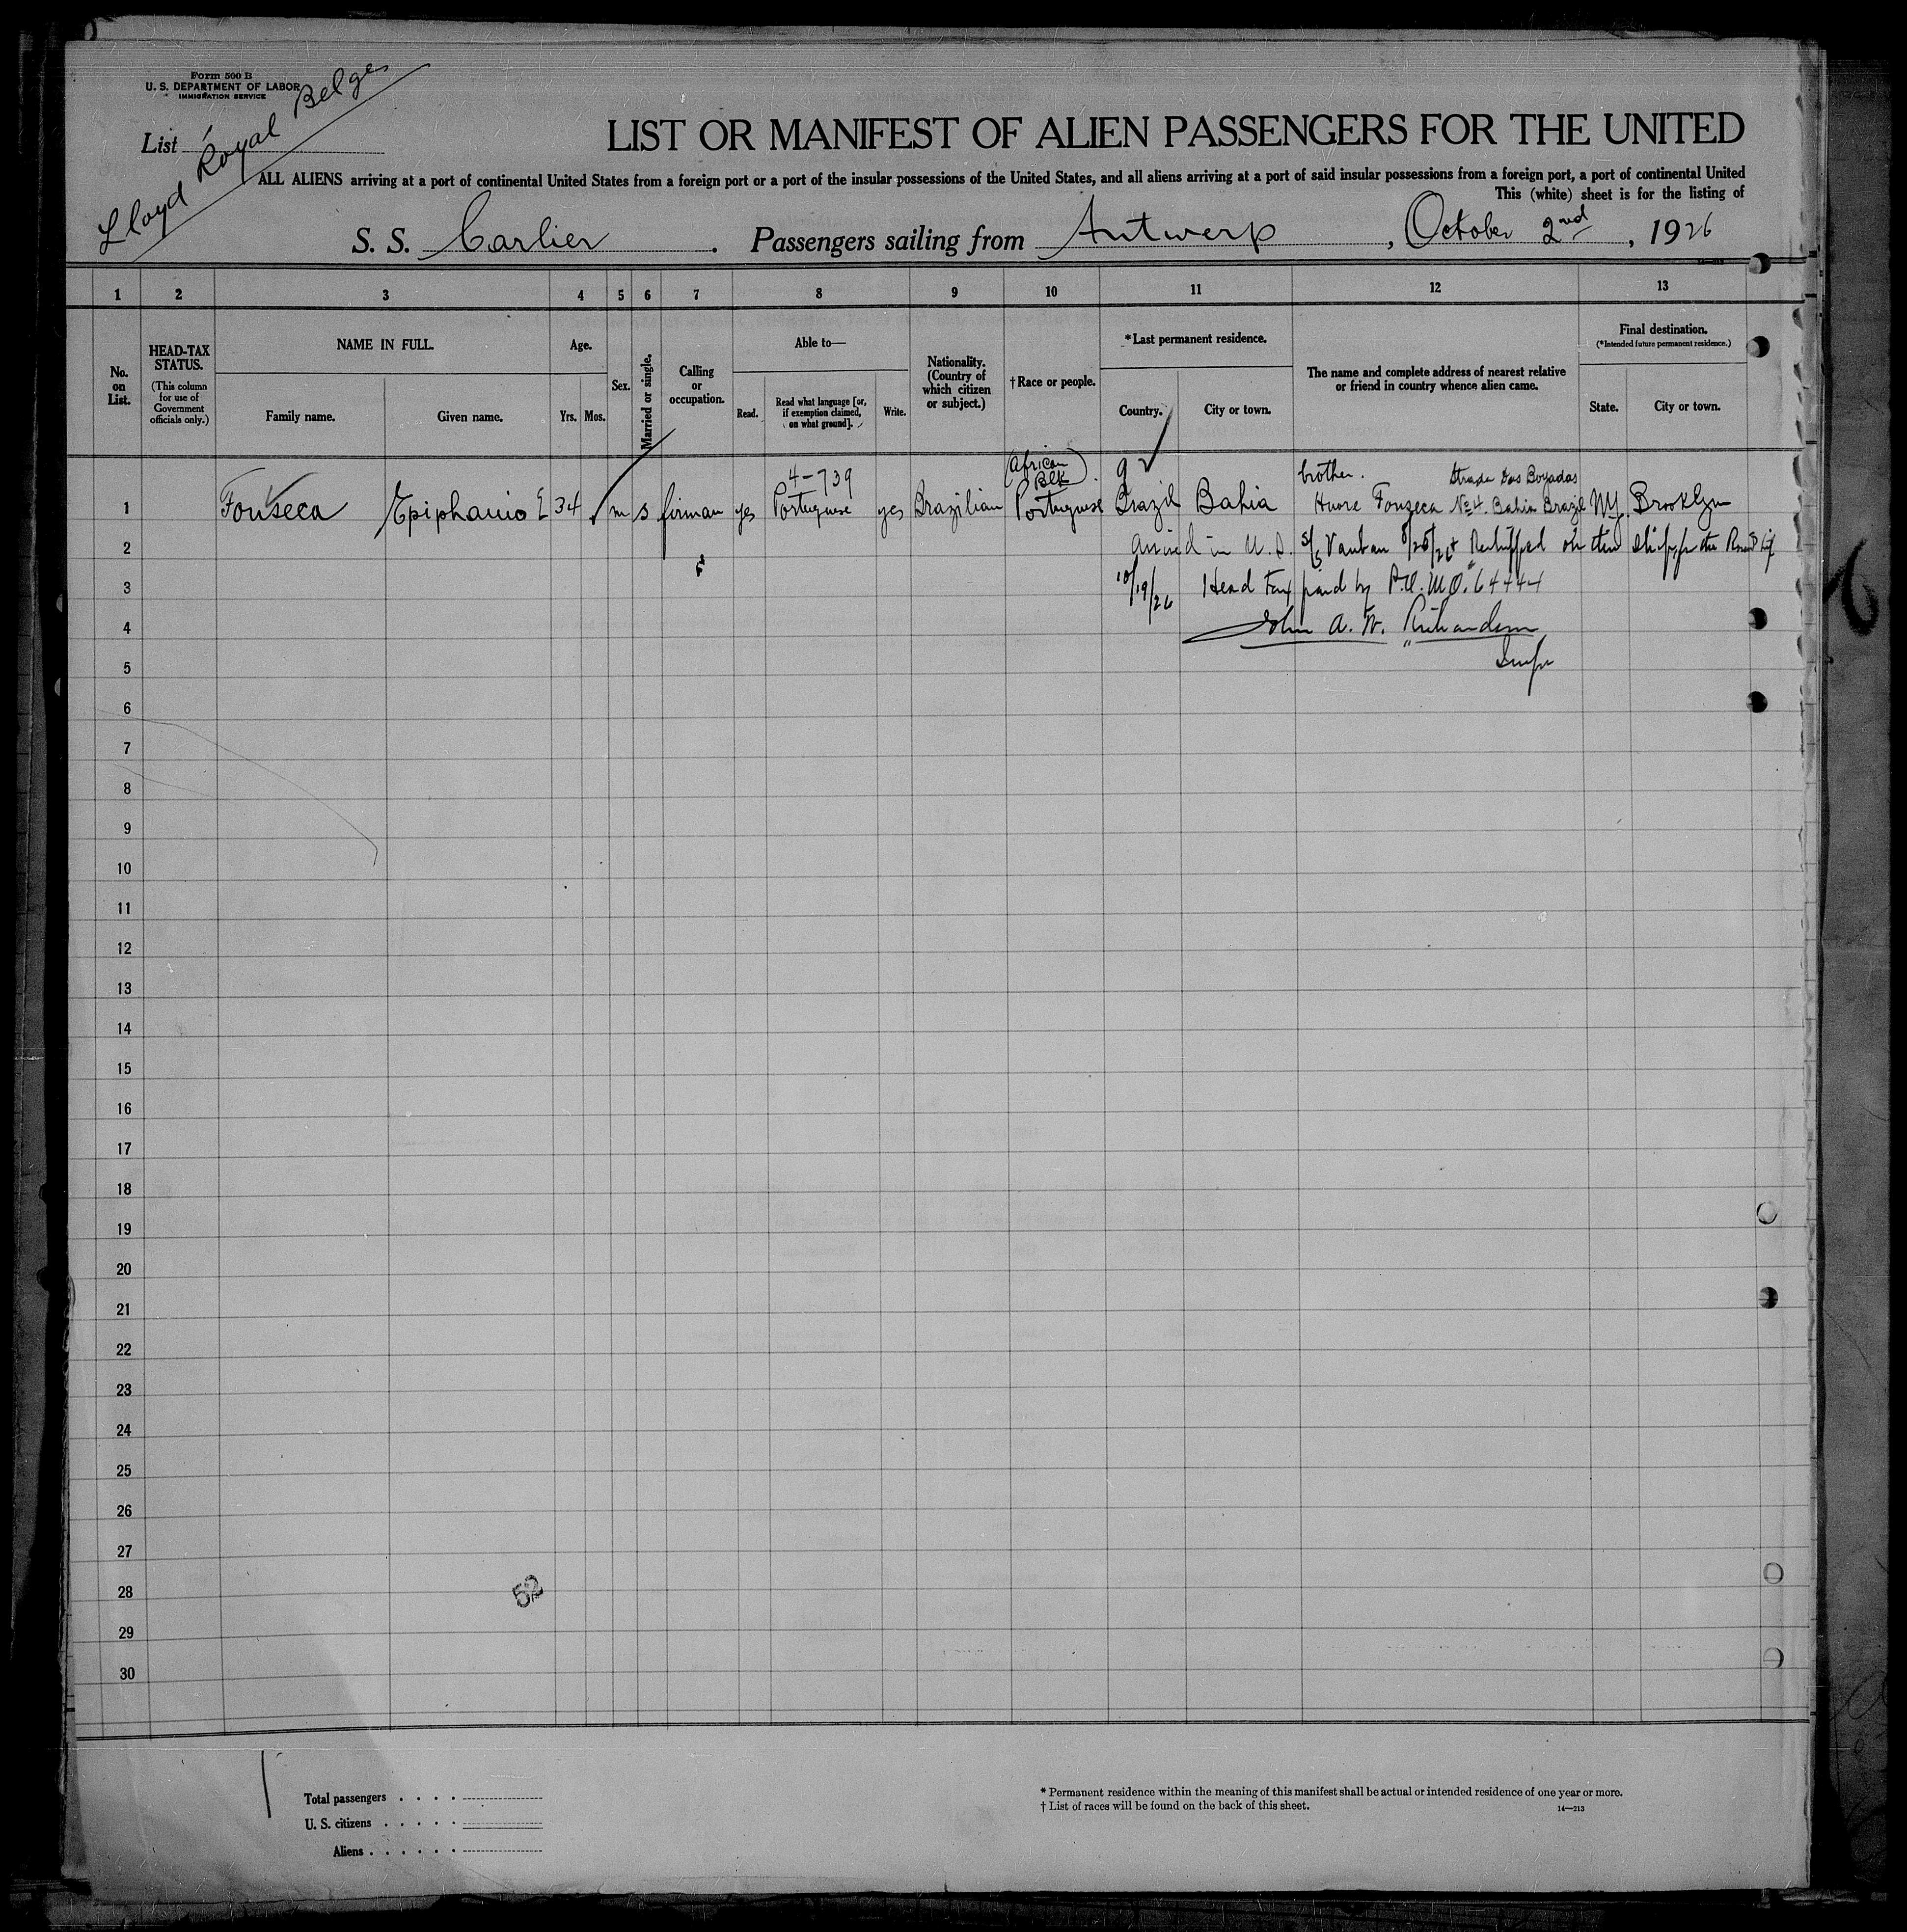 Form 500 B
U. S. DEPARTMENT OF LABOR
IMMIGRATION SERVICE
Lloyd Royal Belge
List
LIST OR MANIFEST OF ALIEN PASSENGERS FOR THE UNITED
ALL ALIENS arriving at a port of continental United States from a foreign port or a port of the insular possessions of the United States, and all aliens arriving at a port of said insular possessions from a foreign port, a port of continental United
This (white) sheet is for the listing of
S. S. Carlier . Passengers sailing from Antwerp , October 2nd , 1926
1 2 3 4 5 6 7 8 9 10 11 12 13
No. on List.
HEAD-TAX STATUS.
(This column for use of Government officials only.)
NAME IN FULL.
Family name. Given name.
Age.
Yrs. Mos.
Sex.
Married or single.
Calling or occupation.
Able to—
Read. Read what language [or, if exemption claimed, on what ground]. Write.
Nationality. (Country of which citizen or subject.)
†Race or people.
*Last permanent residence.
Country. City or town.
The name and complete address of nearest relative or friend in country whence alien came.
Final destination.
(*Intended future permanent residence.)
State. City or town.
4-739 (African Blk) brother. Strada das Boyadas
1 Fonseca Epiphanio E 34 m s firman yes Portuguese yes Brazilian Portuguese Brazil Bahia Fonseca No 4. Bahia Brazil NY. Brooklyn
2 Arrived in U.S. S/S Vauban 8/25/26 + Reshipped on this ship for the Round trip
3 10/19/26 Head tax paid by P.O.M.O. 64444
4 John A. W. Richardson
5 Inspr
6
7
8
9
10
11
12
13
14
15
16
17
18
19
20
21
22
23
24
25
26
27
28
52
29
30
Total passengers
U. S. citizens
Aliens
* Permanent residence within the meaning of this manifest shall be actual or intended residence of one year or more.
† List of races will be found on the back of this sheet.
14—213